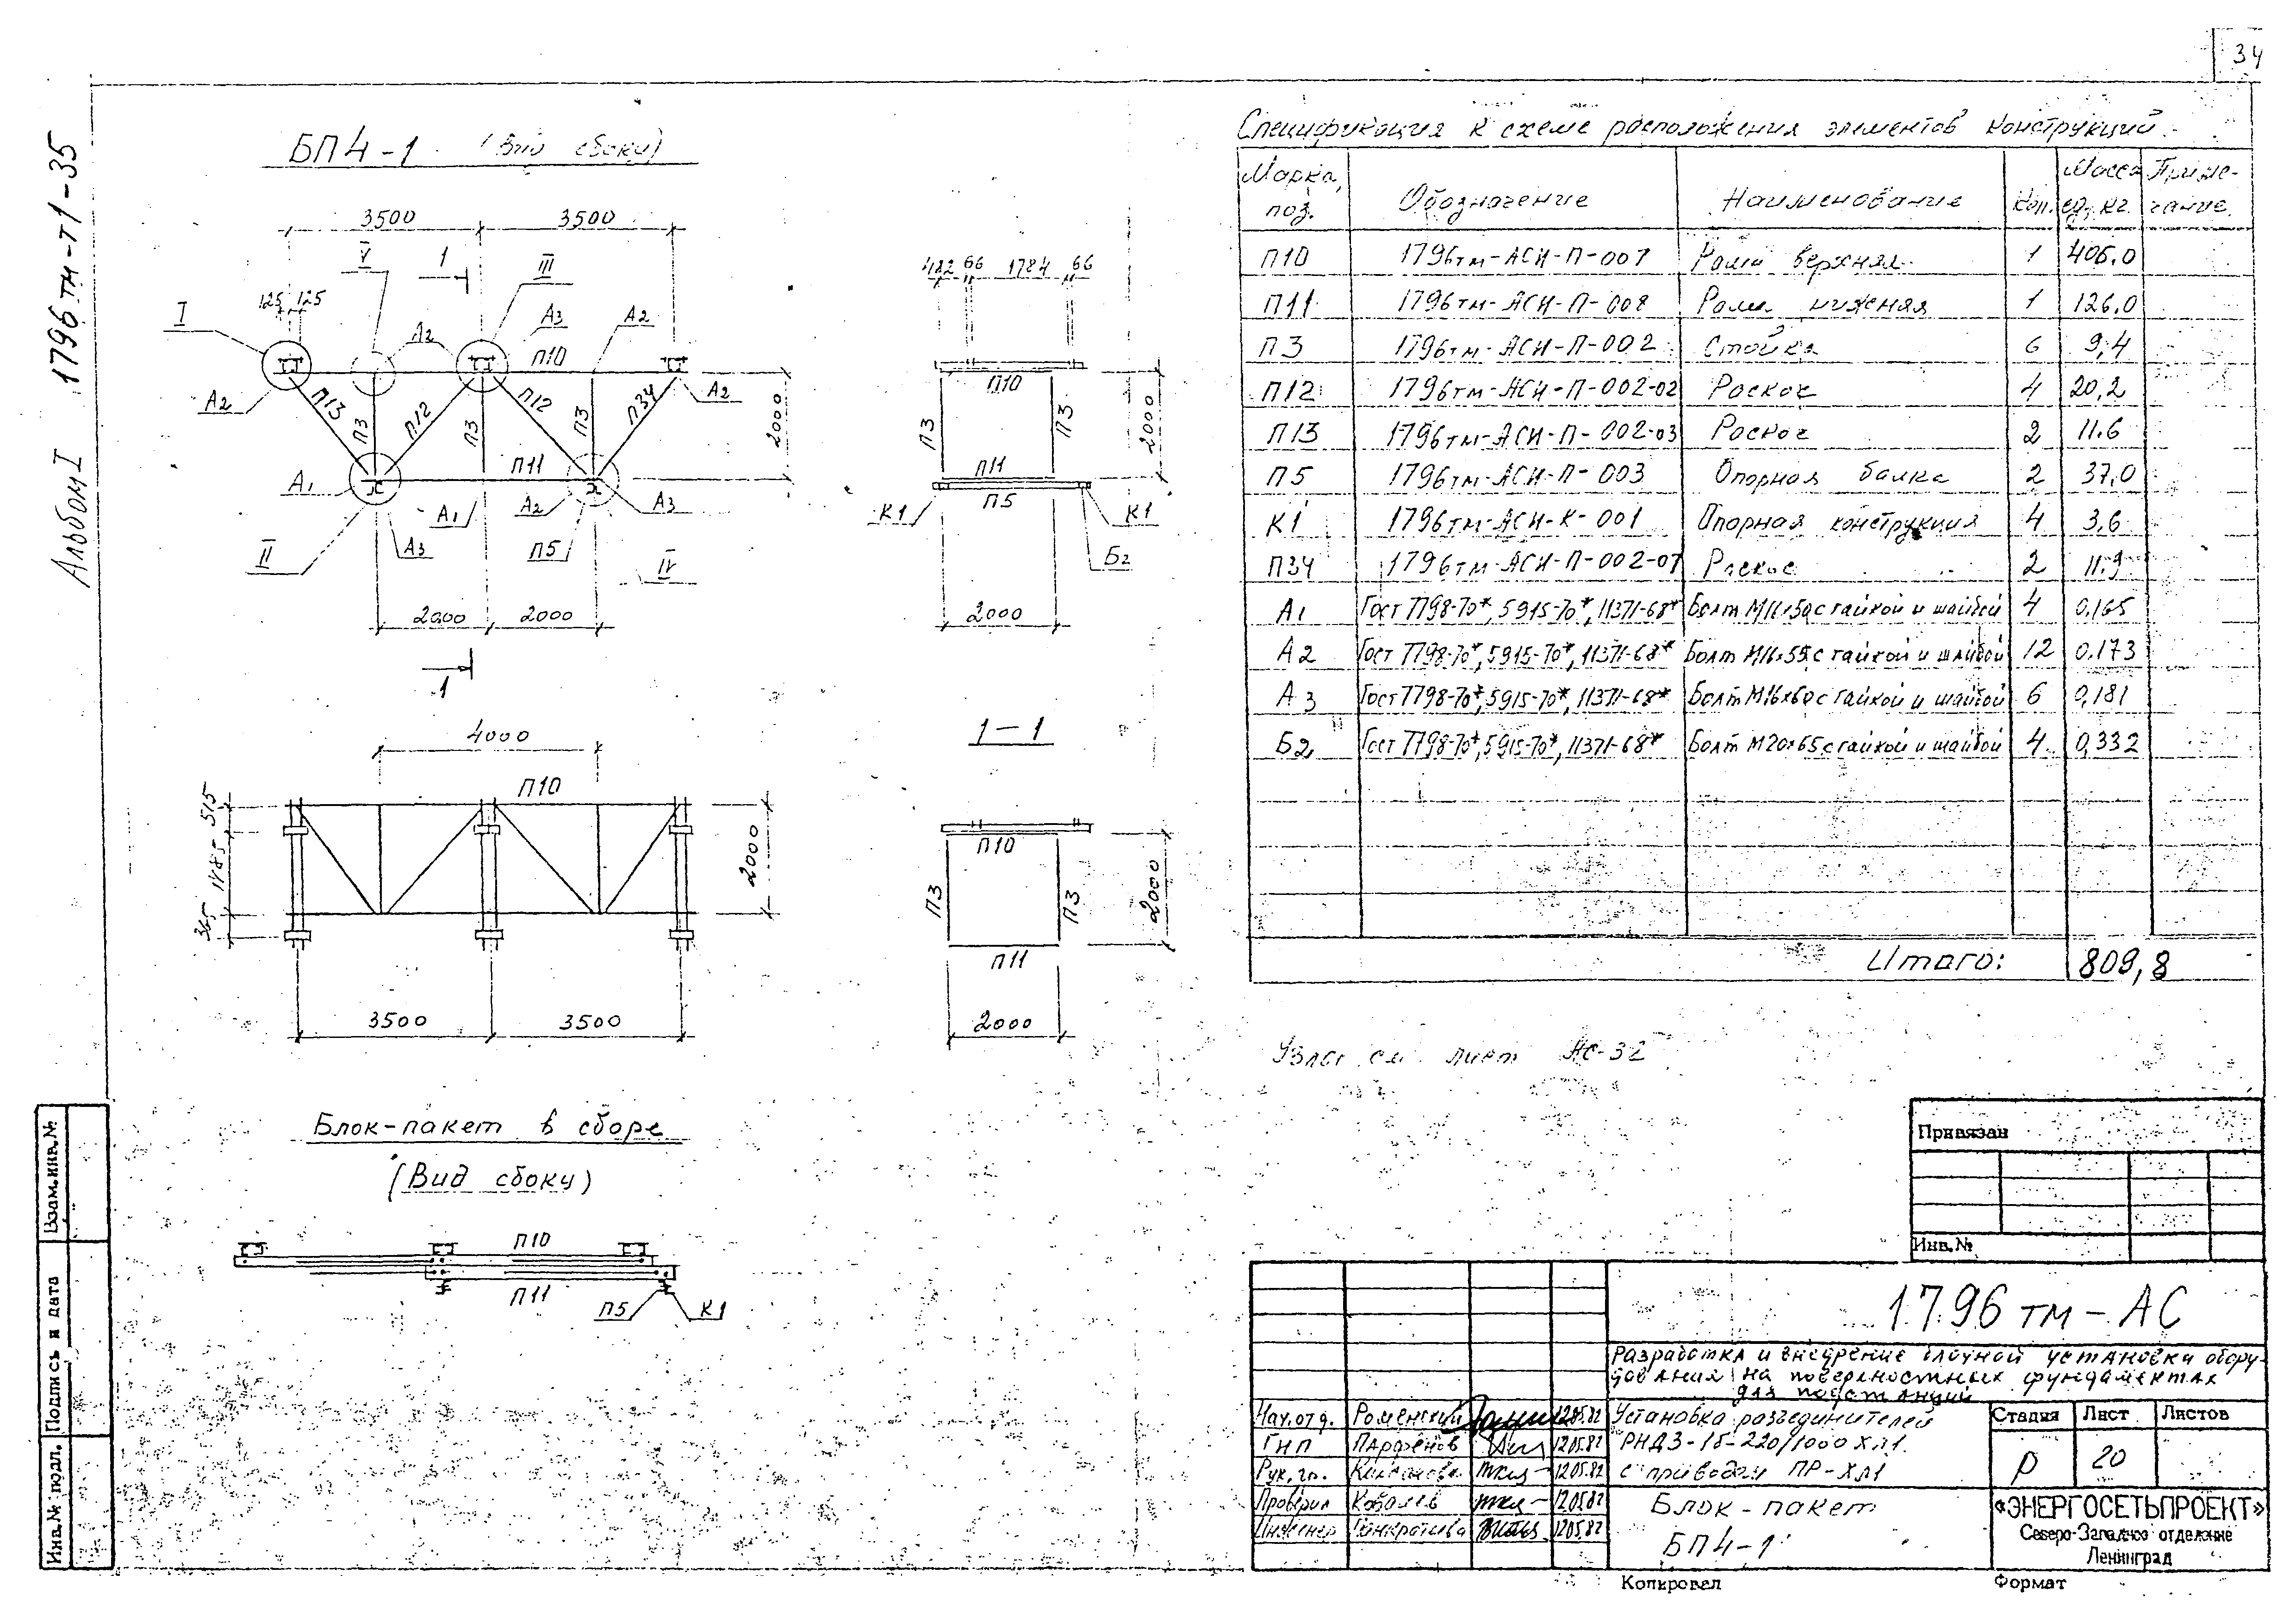 34
Альбом I 1796тм-т1-35
БП4-1 (Вид сбоку)
3500 3500
V 1 III
125 125
I
А2 А3 А2
П10
А2 П13 П3 П12 П3 П12 П3 П34 А2
2000
П11
А1 А1 А2 А3
II А3 П5 IV
2000 2000
1
482 66 1784 66
П10
П3 П3
2000
П11
К1 П5 К1
Б2
2000
4000
П10
515
1485
2000
3500 3500
1-1
П10
П3 П3
2000
П11
2000
Блок-пакет в сборе
(Вид сбоку)
П10
П11 П5 К1
Спецификация к схеме расположения элементов конструкций
Марка, поз. Обозначение Наименование Кол. Масса ед, кг. Приме-чание
П10 1796тм-АСИ-П-007 Рама верхняя 1 406.0
П11 1796тм-АСИ-П-008 Рама нижняя 1 126.0
П3 1796тм-АСИ-П-002 Стойка 6 9,4
П12 1796тм-АСИ-П-002-02 Раскос 4 20,2
П13 1796тм-АСИ-П-002-03 Раскос 2 11.6
П5 1796тм-АСИ-П-003 Опорная балка 2 37,0
К1 1796тм-АСИ-К-001 Опорная конструкция 4 3,6
П34 1796тм-АСИ-П-002-07 Раскос 2 11.9
А1 Гост 7798-70*, 5915-70*, 11371-68* Болт М16х50 с гайкой и шайбой 4 0.165
А2 Гост 7798-70*, 5915-70*, 11371-68* Болт М16х55 с гайкой и шайбой 12 0.173
А3 Гост 7798-70*, 5915-70*, 11371-68* Болт М16х60 с гайкой и шайбой 6 0,181
Б2 Гост 7798-70*, 5915-70*, 11371-68* Болт М20х65 с гайкой и шайбой 4 0,332
Итого: 809,8
Узлы см. лист АС-32
Привязан
Инв.№
1796 тм - АС
Разработка и внедрение блочной установки обору-
дования на поверхностных фундаментах
для подстанций
Нач.отд. Роменский 12.05.82
ГИП Парфенов 12.05.82
Рук.гр. 12.05.82
Проверил Ковалев 12.05.82
Инженер Панкратьева 12.05.82
Установка разъединителей
РНДЗ-1б-220/1000 ХЛ1
с приводом ПР-ХЛ1
Стадия Лист Листов
Р 20
Блок-пакет
БП4-1
«ЭНЕРГОСЕТЬПРОЕКТ»
Северо-Западное отделение
Ленинград
Копировал Формат
Взам.инв.№
Подпись и дата
Инв.№ подл.